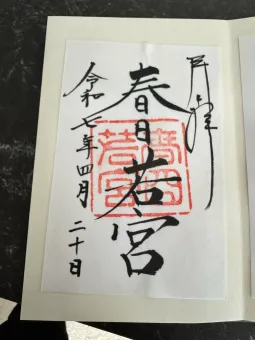 奉拝
春日若宮
令和七年四月二十日